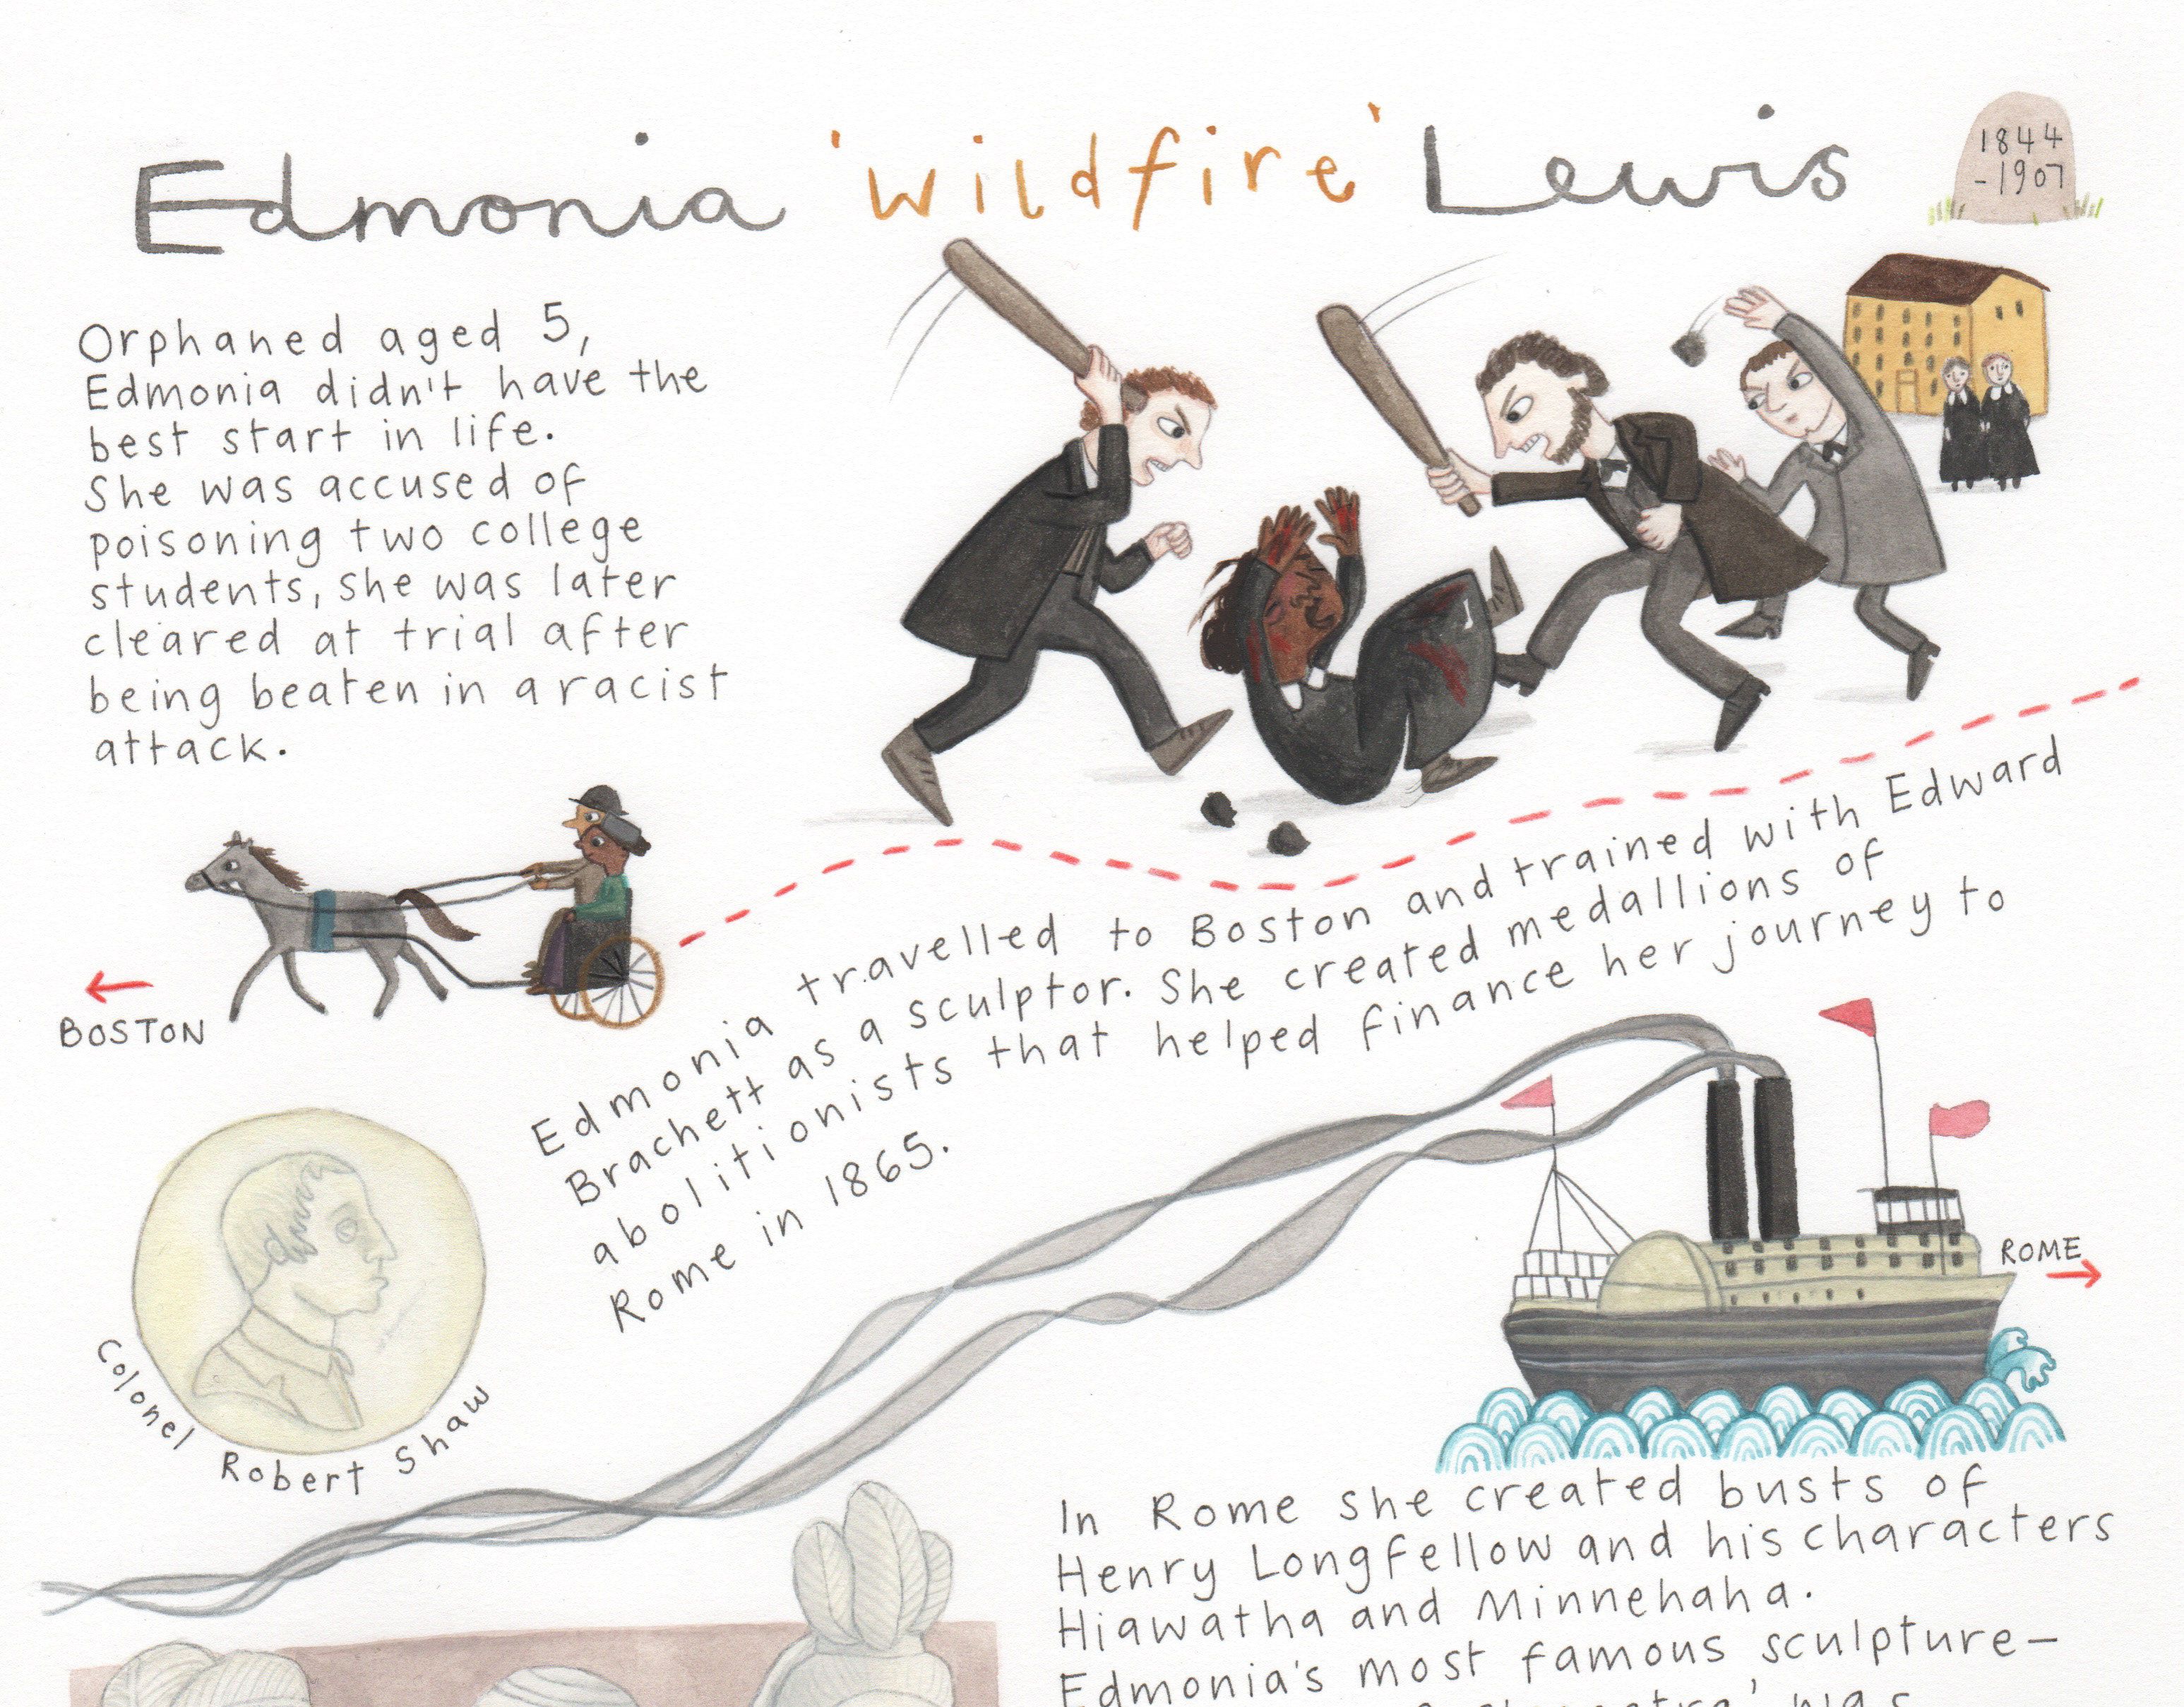 Edmonia 'wildfire' Lewis
1844
-1907
Orphaned aged 5,
Edmonia didn't have the
best start in life.
She was accused of
poisoning two college
students, she was later
cleared at trial after
being beaten in a racist
attack.
BOSTON
Edmonia travelled to Boston and trained with Edward
Brachett as a sculptor. She created medallions of
abolitionists that helped finance her journey to
Rome in 1865.
Colonel Robert Shaw
ROME
In Rome she created busts of
Henry Longfellow and his characters
Hiawatha and Minnehaha.
Edmonia's most famous sculpture—
was